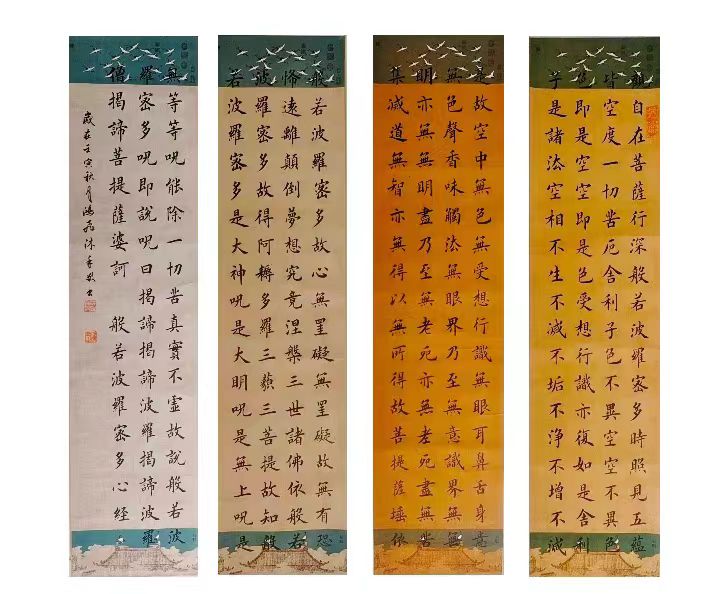 觀自在菩薩行深般若波羅密多時照見五蘊
皆空度一切苦厄舍利子色不異空空不異色
色即是空空即是色受想行識亦復如是舍利
子是諸法空相不生不滅不垢不淨不增不減
是故空中無色無受想行識無眼耳鼻舌身意
無色聲香味觸法無眼界乃至無意識界無無
明亦無無明盡乃至無老死亦無老死盡無苦
集滅道無智亦無得以無所得故菩提薩埵依
般若波羅密多故心無罣礙無罣礙故無有恐
怖遠離顛倒夢想究竟涅槃三世諸佛依般若
波羅密多故得阿耨多羅三藐三菩提故知般
若波羅密多是大神呪是大明呪是無上呪是
無等等呪能除一切苦真實不虛故說般若波
羅密多呪即說呪曰揭諦揭諦波羅揭諦波羅
僧揭諦菩提薩婆訶 般若波羅密多心經
歲在壬寅秋月鴻飛沐手敬書